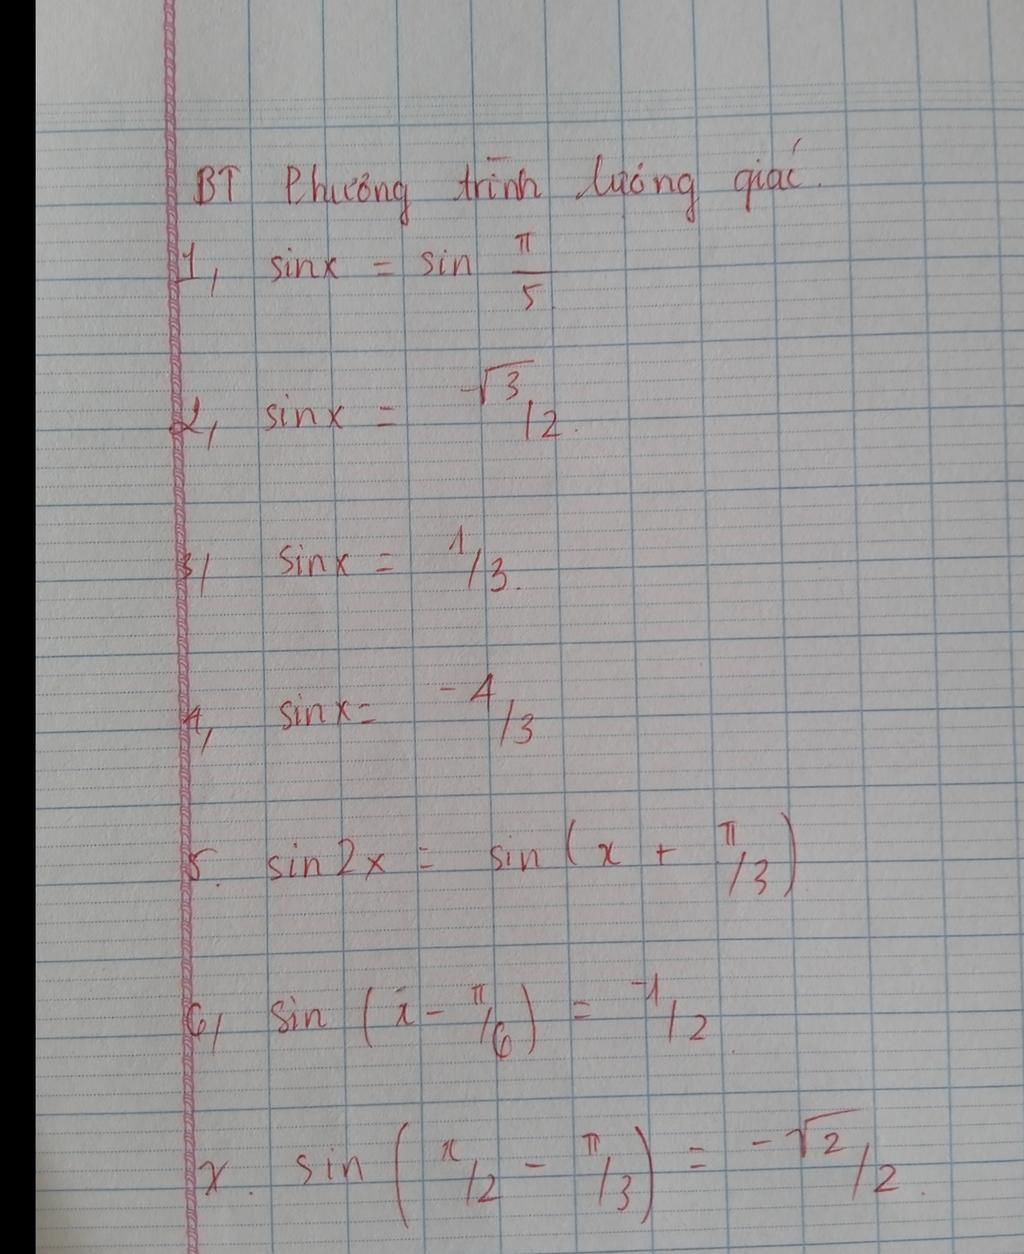 BT Phương trình lượng giác.
1, sinx = sin π/5
2, sinx = -√3/2.
3/ sinx = 1/3.
4, sinx = -4/3
5. sin2x = sin(x + π/3)
6, sin (x - π/6) = -1/2
7. sin (x/2 - π/3) = -√2/2.